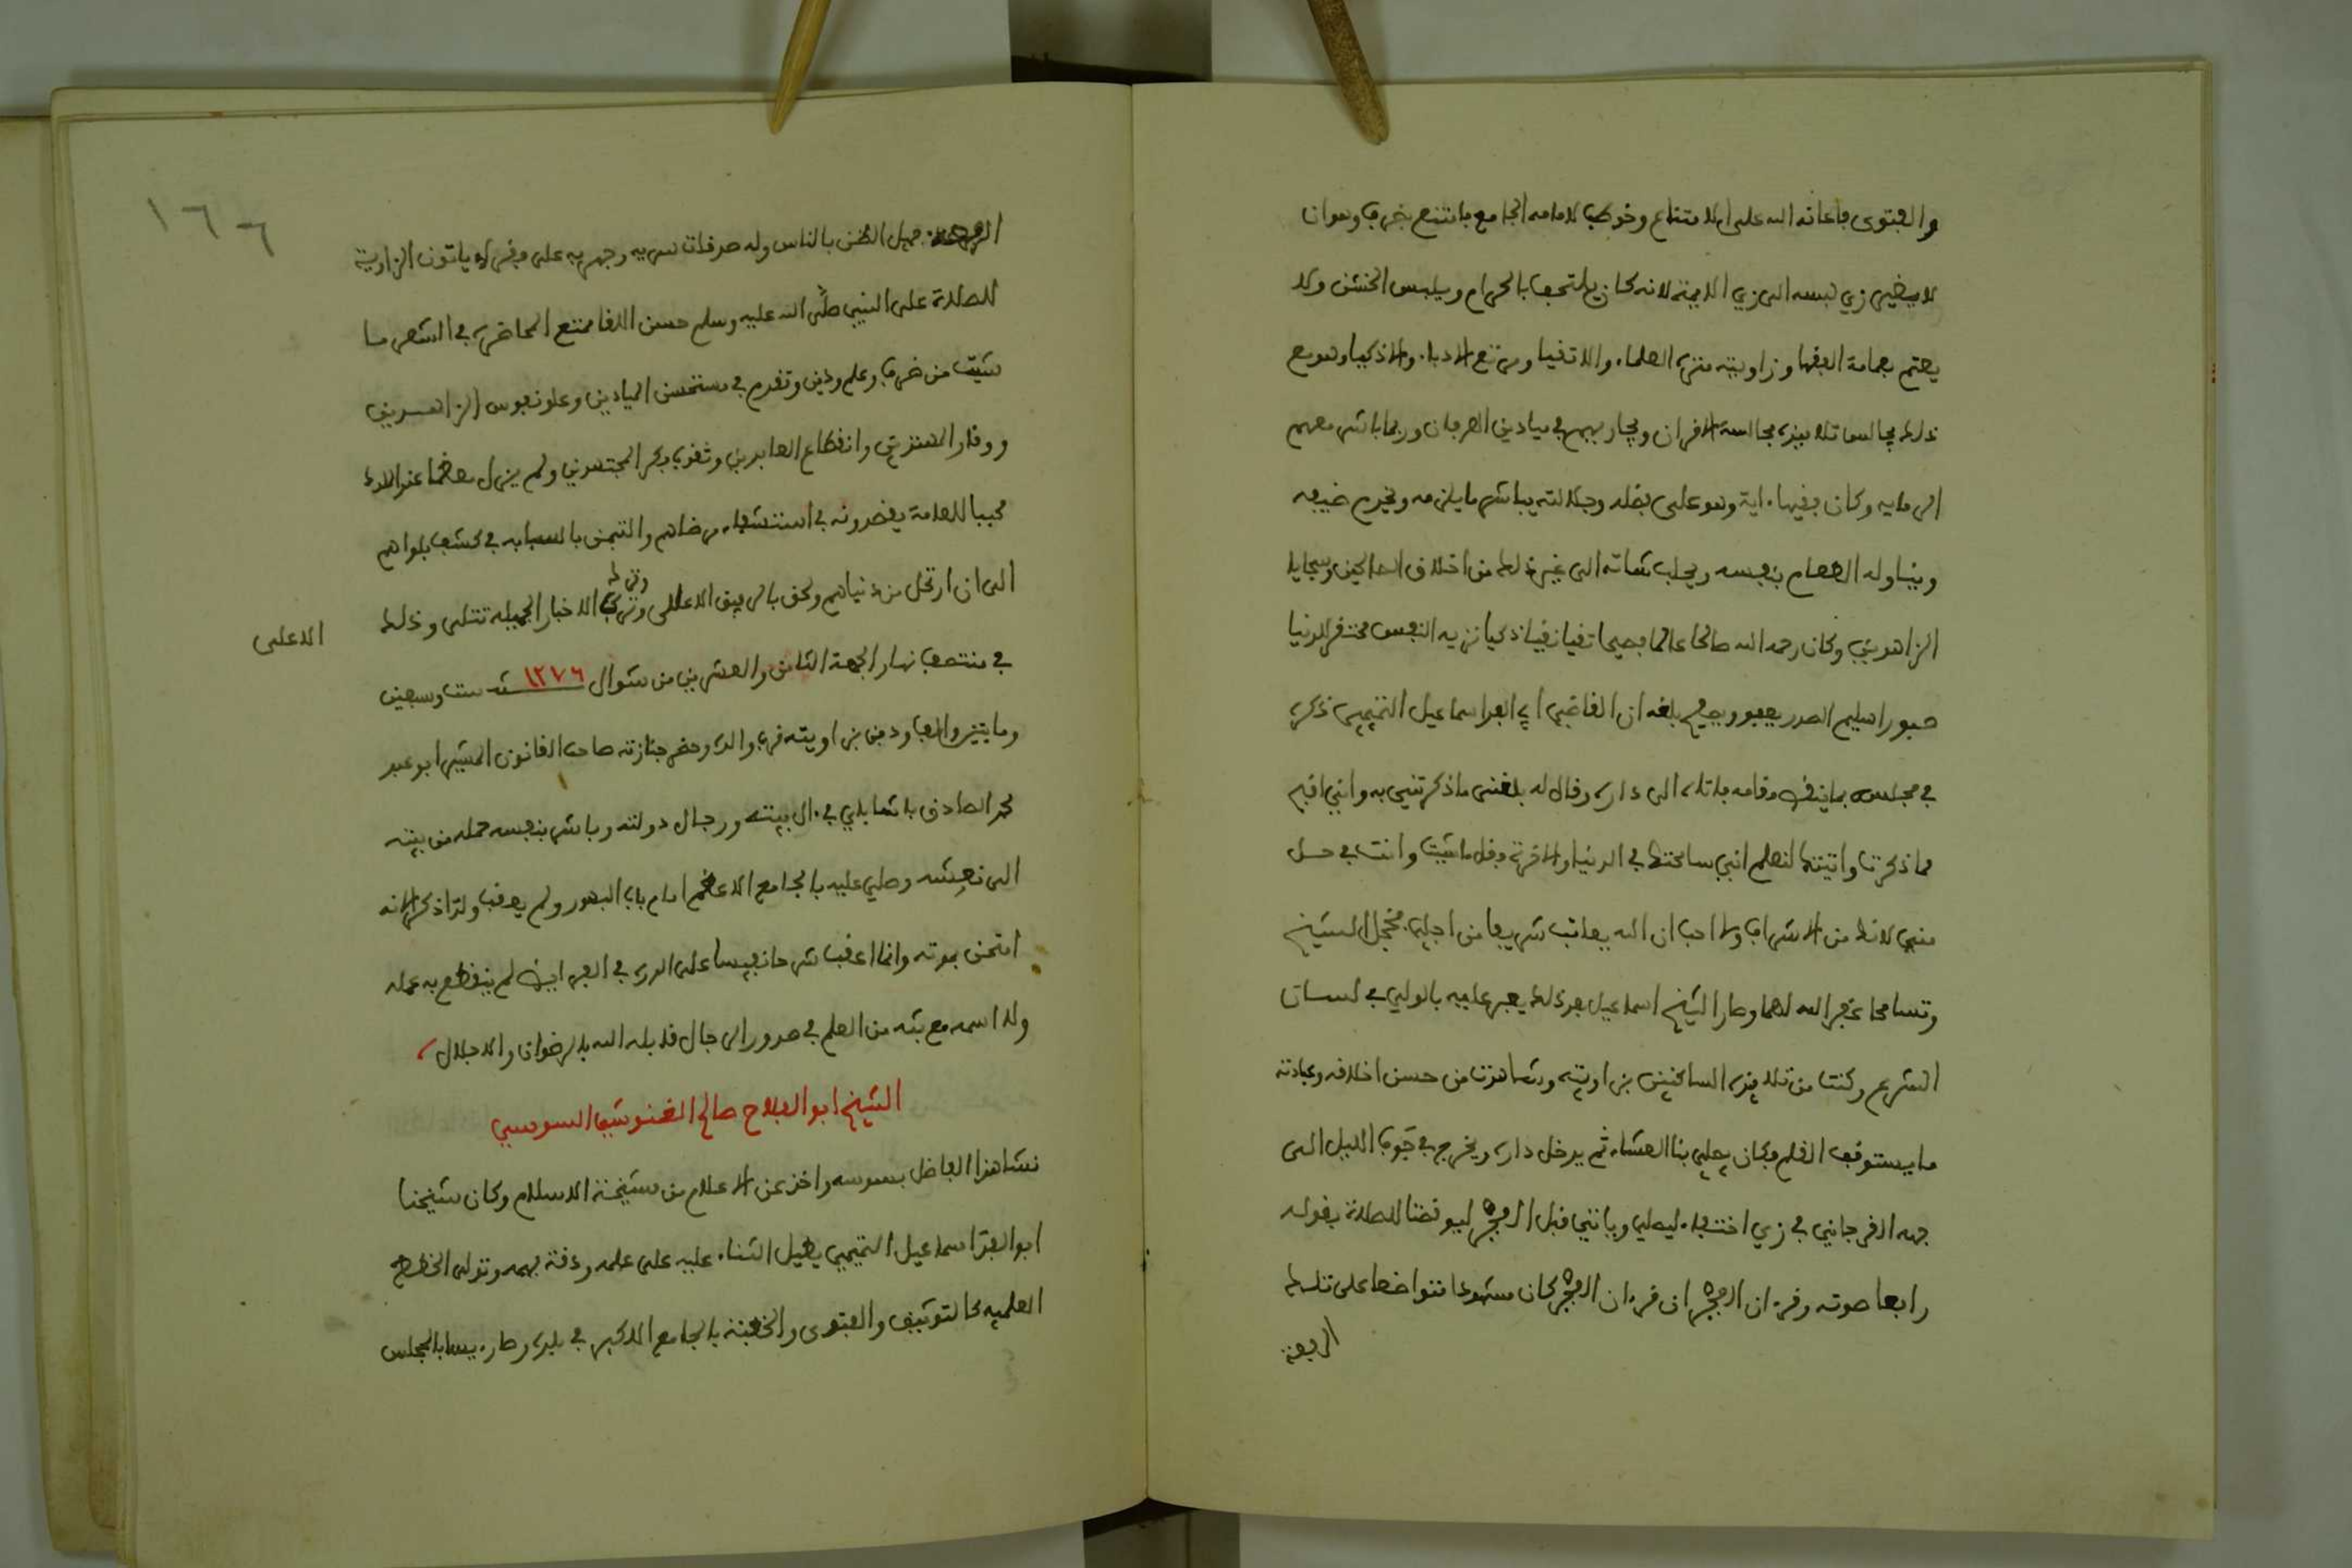 والفتوى فاعانه الله على الامتناع وخوطب لامامه الجامع فامتنع بخرق وهو ان
لا يغير زي لبسه الى زي الايمة لانه كان يلتحف بالحرام ويلبس الخشن ولا
يعتم بعمامة الفقها وزاويته منزه العلماء والاتقيا ومرتع الادباء والاذكيا وهو مع
ذلك يجالس تلاميذه مجالسة الاقران ويجاريهم في ميادين العرفان وربما باشر معهم
الرمايه وكان فيها ءاية وهو على فضله وجلالته يباشر ما يلزمه ويخدم ضيفه
ويناوله الطعام بنفسه ويحلب شاته الى غير ذلك من اخلاق الصالحين وسجايا
الزاهدين وكان رحمه الله صالحا عالما فصيحا تقيا نقيا ذكيا نزيه النفس محتقر الدنيا
صبورا سليم الصدر يعفو ويصفح بلغه ان القاضي ابا الفدا اسماعيل التميمي ذكره
في مجلسه بما ينقص مقامه فاتاه الى داره وقال له بلغني ما ذكرتني به وانني اقبح
مما ذكرت واتيتك لتعلم اني سامحتك في الدنيا والاخرة فقل ما شيت وانت في حل
مني لانك من الاشراف ولا احب ان الله يعاتب شريفا من اجلي فخجل الشيخ
وتسامحا غفر الله لهما وصار الشيخ اسماعيل بعد ذلك يعبر عليه بالولي في لسان
الشرع وكنت من تلاميذه الساكنين بزاويته وشاهدت من حسن اخلاقه وعبادته
ما يستوقف القلم فكان يصلي بنا العشاء ثم يدخل داره ويخرج في جوف الليل الى
جهه الفرجاني في زي اختفاء ليصلي وياتي قبل الفجر ليوقضنا للصلاة بقوله
رافعا صوته وقرءان الفجر ان قرءان الفجر كان مشهودا متواضعا على تلك
الرفعة
١٦٦
الرفعة جميل الظن بالناس وله صدقات سريه وجهريه على فقراء ياتون الزاوية
للصلاة على النبي صلى الله عليه وسلم حسن اللقا ممتع المحاضره في اشعر ما
شيت من ضرف وعلم ودين وتقدم في مستحسن الميادين وعلو نفوس الزاهدين
ووقار المهتدين وانقطاع العابدين وثقوب فكر المجتهدين ولم يزل معظما عند الامراء
محببا للعامة يقصدونه في استشفاء مرضاهم والتيمن باسبابه في كشف بلواهم
الى ان ارتحل من دنياهم ولحق بالرفيق الاعلى وترك له الاخبار الجميله تتلى وذلك
الاعلى
في منتصف نهار الجمعة الثامن والعشرين من شوال ١٢٧٦ سنة ست وسبعين
ومايتين والف ودفن بزاويته قرب والده وحضر جنازته صاحب القانون المشير ابو عبد
محمد الصادق باشا باي في ءال بيته ورجال دولته وباشر بنفسه حمله من بيته
الى نعشه وصلي عليه بالجامع الاعظم امام باب البهور ولم يعقب ولدا ذكرا لانه
امتحن بموته وانما اعقب شرحا نفيسا على الدرة في الفرايض لم ينقطع به عمله
ولا اسمه مع بثه من العلم في صدور الرجال قابله الله بالرضوان والاجلال
الشيخ ابو الفلاح صالح الغنوشي السوسي
نشا هذا الفاضل بسوسه واخذ عن الاعلام من مشيخة الاسلام وكان شيخنا
ابو الفدا اسماعيل التميمي يطيل الثناء عليه على علمه ودقة فهمه وتولى الخطط
العلميه كالتوثيق والفتوى والخطبة بالجامع الاكبر في بلده وصار ءيسا بالمجلس